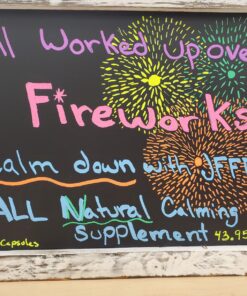 ll Worked up ove
Fireworks
calm down with JFFF
ALL Natural Calming
Supplement 43.95
Capsules